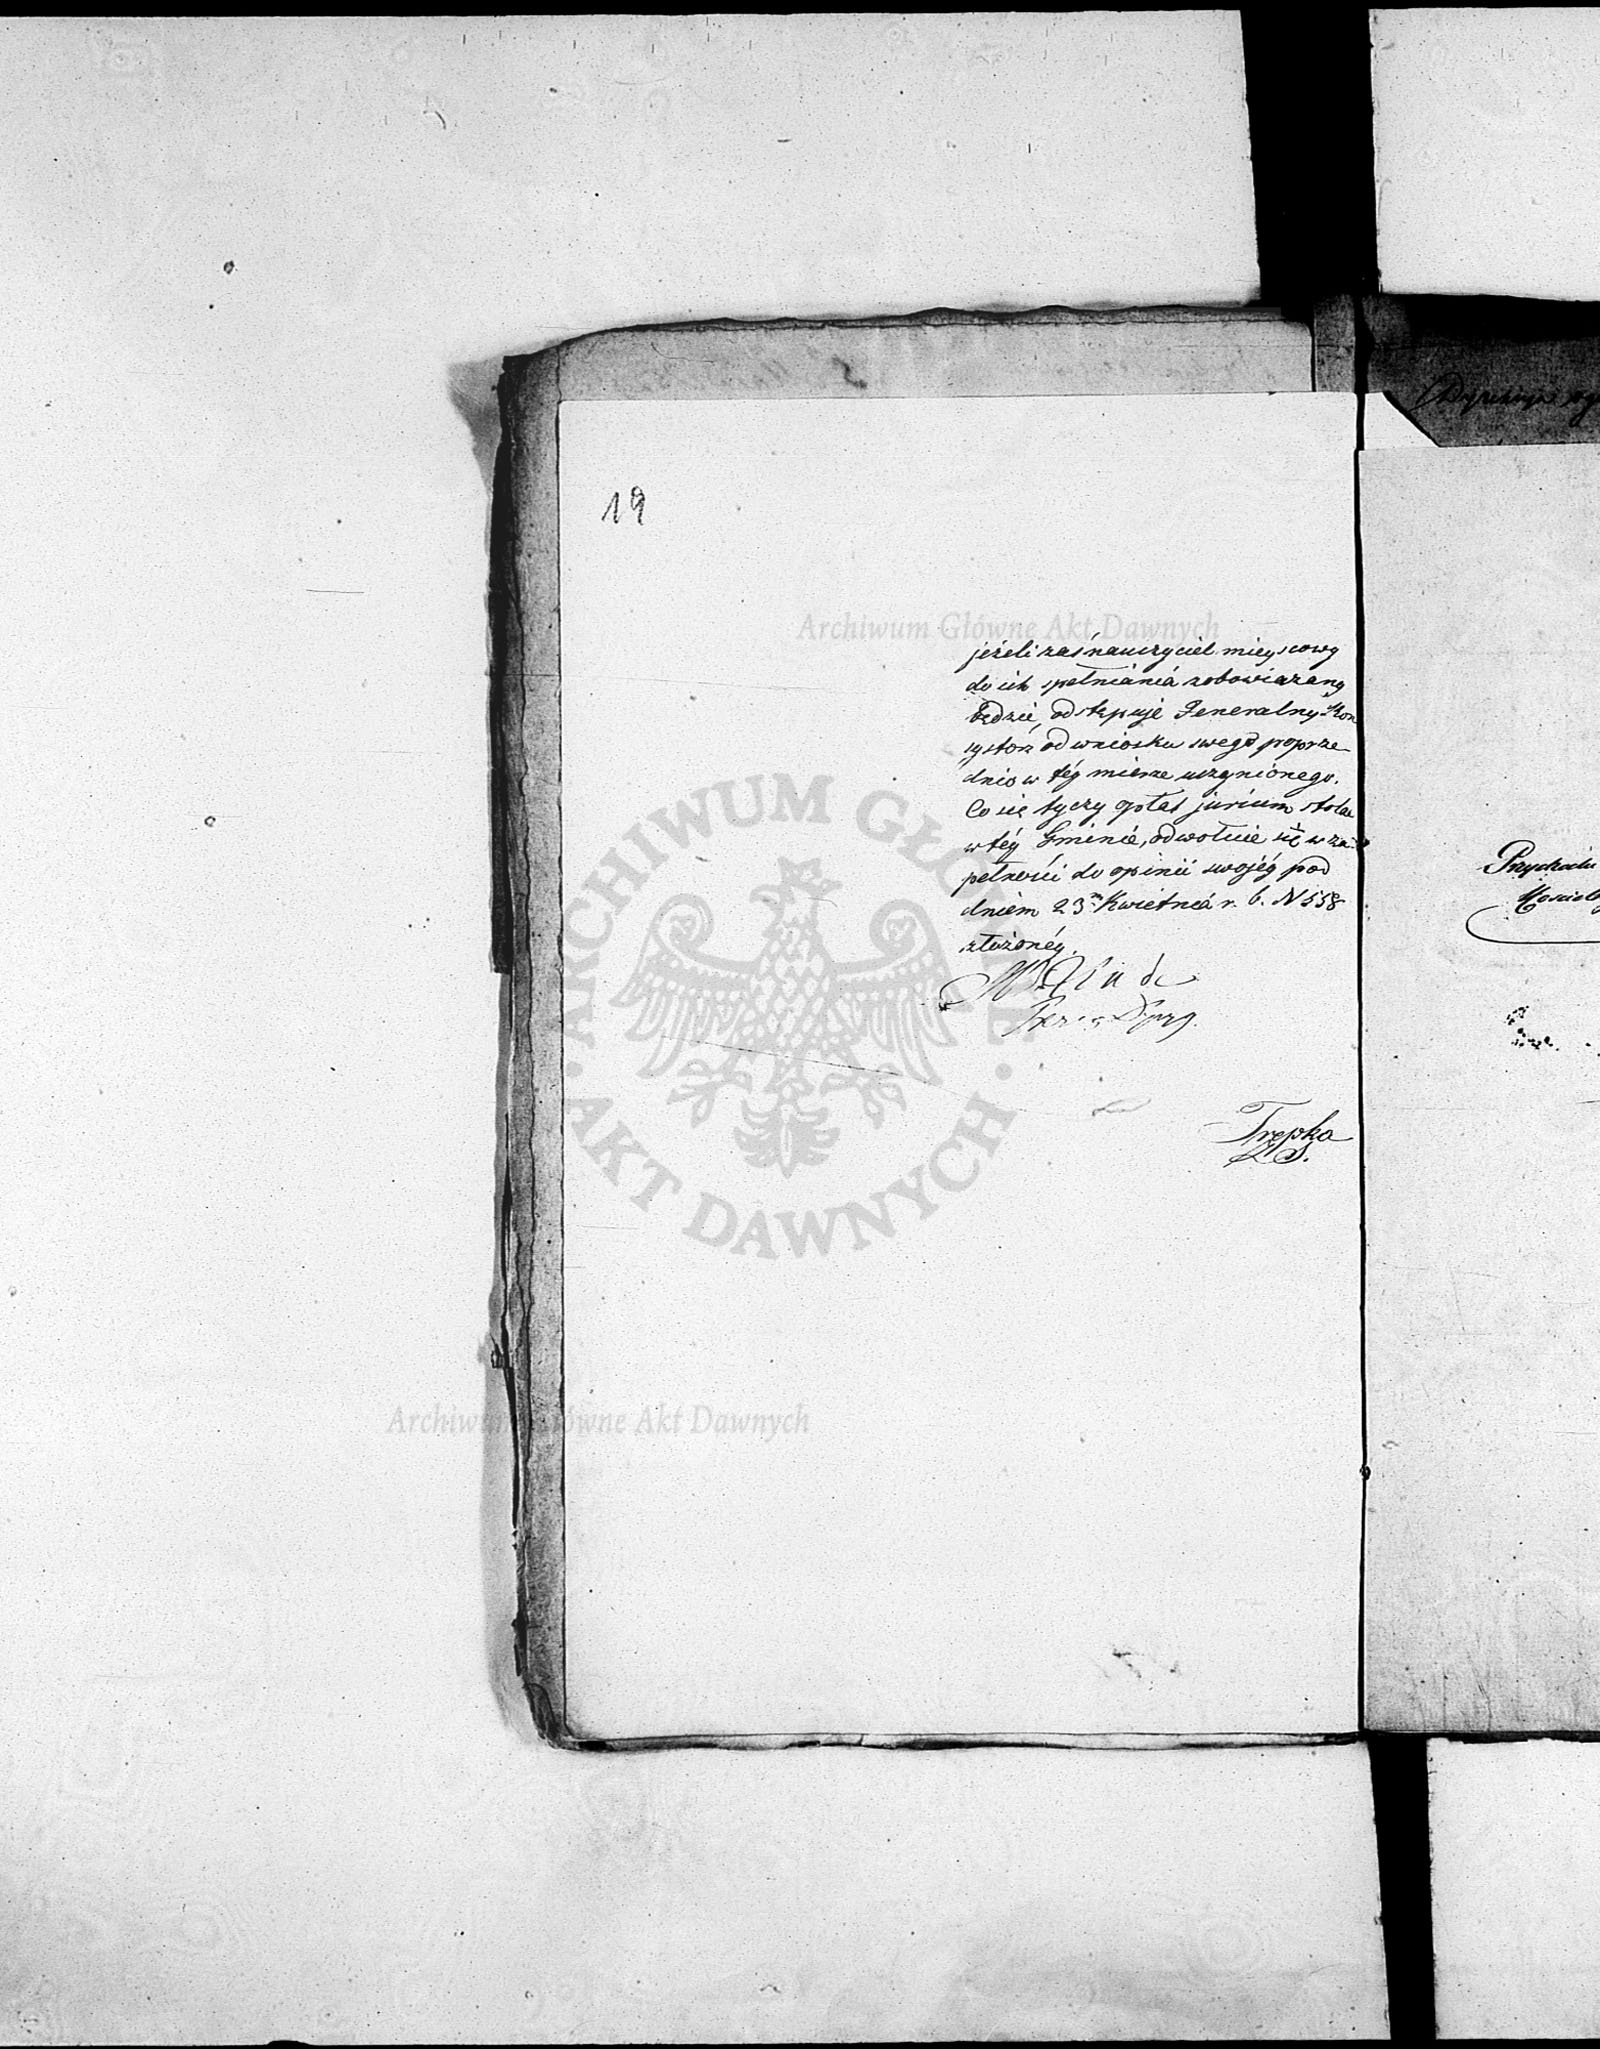 19
Archiwum Główne Akt Dawnych
jeżeli zaś nauczyciel mieyscowy
do ich spełniania zobowiązany
będzie, odstępuje Generalny Kon
systorz od wniosku swego poprze-
dnio w téy mierze uczynionego.
Co się tyczy opłat jurium stolae
w téy Gminie, odwołuie się w zu-
pełności do opinii swojéy pod
dniem 23m Kwietnia r. b. N 558
złożonéy.
Trepka
ARCHIWUM GŁÓWNE
AKT DAWNYCH
Archiwum Główne Akt Dawnych
Przychodu